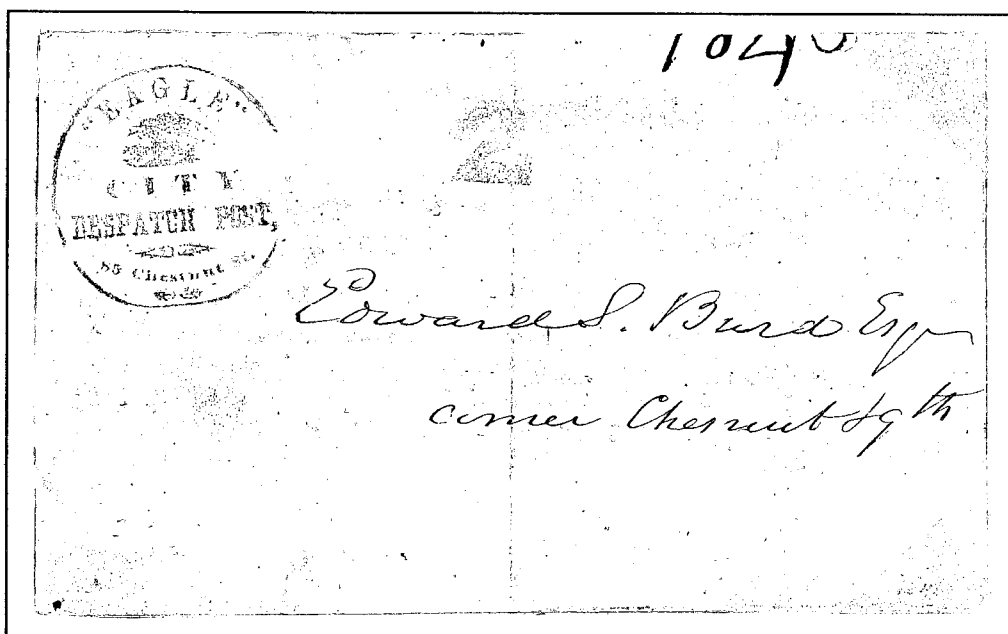 "EAGLE"
CITY
DESPATCH POST,
85 Chestnut St.
2
Edward S. Burd Esqr
corner Chesnut & 9th